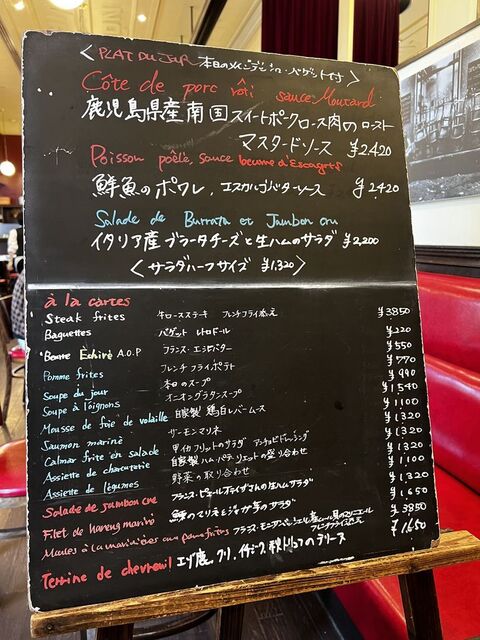 < PLAT DU JUR 本日のメインディッシュ・バゲット付です >
Côte de porc rôti sauce Moutard
鹿児島県産南国スイートポークロース肉のロースト
マスタードソース ¥2420
Poisson poêlé, sauce beurre d'Escagrts
鮮魚のポワレ、エスカルゴバターソース ¥2420
Salade de Burrata et Jambon cru
イタリア産ブラータチーズと生ハムのサラダ ¥2,200
< サラダハーフサイズ ¥1,320 >
à la cartes
Steak frites 牛ロースステーキ フレンチフライ添え ¥3850
Baguettes バゲット レトロドール ¥220
Beurre Échiré A.O.P フランス・エシレバター ¥550
Pomme frites フレンチフライポテト ¥770
Soupe du jour 本日のスープ ¥990
Soupe à l'oignons オニオングラタンスープ ¥1540
Mousse de foie de volaille 自家製 鶏白レバームース ¥1100
Saumon mariné サーモンマリネ ¥1,320
Calmar frite en salade 甲イカフリットのサラダ アンチョビドレッシング ¥1320
Assiette de charcuterie 自家製ハム・パテ・リエットの盛り合わせ ¥1320
Assiette de légumes 野菜の取り合わせ ¥1,100
Salade de jambon cru フランス・ピエールオテイザさんの生ハムサラダ ¥1,320
Filet de hareng mariné のマリネとじゃが芋のサラダ ¥1,650
Moules à la marinières aux pommes frites フランス・モンサンミッシェル産 ムール貝のマリニエール フレンチフライ添え ¥3850
Terrine de chevreuil エゾ鹿、クリ、イチジク、秋トリュフのテリーヌ ¥1,650